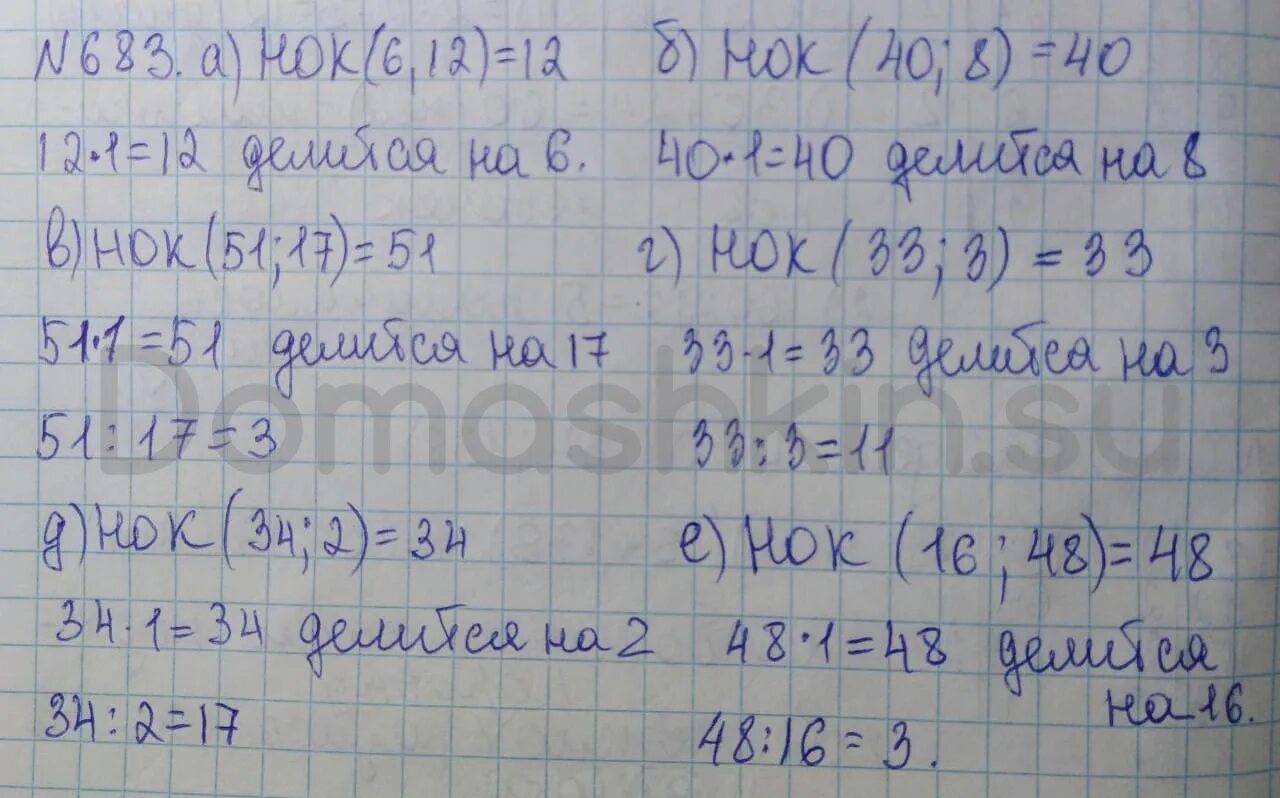 №683. а) НОК(6,12)=12 б) НОК (40; 8) =40
12·1=12 делится на 6. 40·1=40 делится на 8
в) НОК(51;17)=51 г) НОК (33; 3) = 33
51·1=51 делится на 17 33·1=33 делится на 3
Domashkin.su
51:17=3 33:3=11
д) НОК (34;2)=34 е) НОК (16; 48)=48
34·1=34 делится на 2 48·1=48 делится
на 16.
34:2=17 48:16=3.